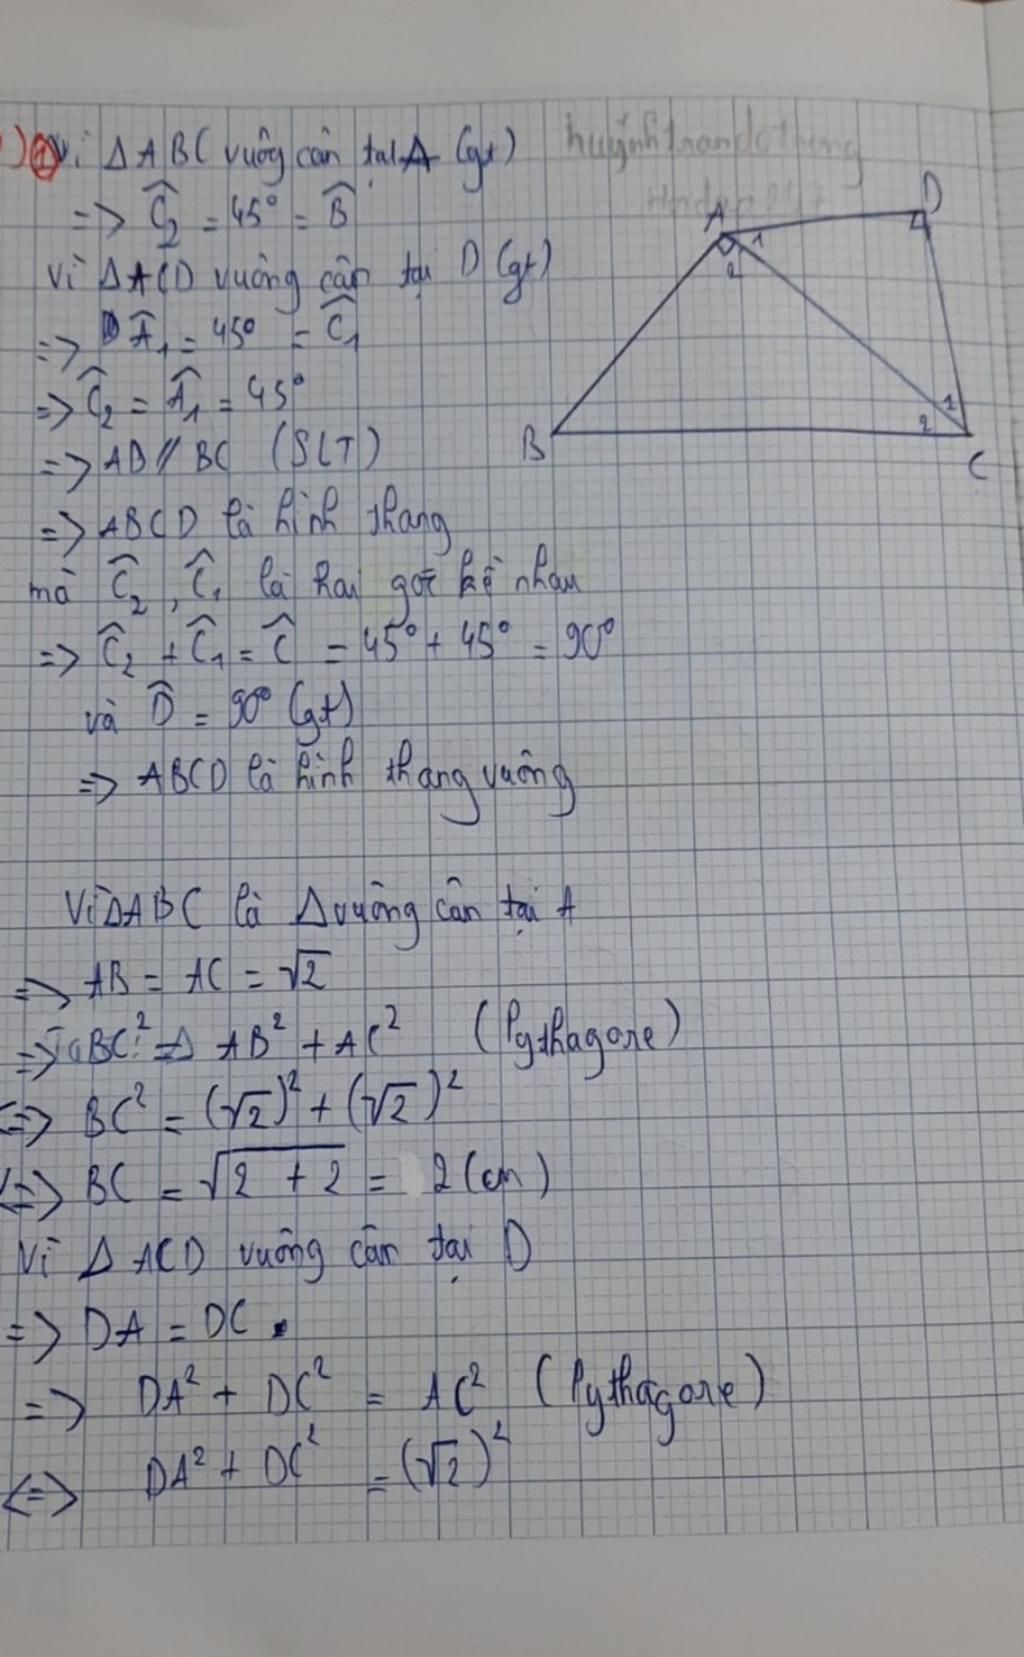 ) ① Vì ΔABC vuông cân tại A (gt)
=> Ĉ₂ = 45° = B̂
Vì ΔACD vuông cân tại D (gt)
=> Â₁ = 45° = Ĉ₁
=> Ĉ₂ = Â₁ = 45°
=> AD // BC (SLT)
=> ABCD là hình thang
mà Ĉ₂, Ĉ₁ là hai góc kề nhau
=> Ĉ₂ + Ĉ₁ = Ĉ = 45° + 45° = 90°
và D̂ = 90° (gt)
=> ABCD là hình thang vuông
huynhtrandothong
A 1 2
D
B
1 2 C
Vì ΔABC là Δ vuông cân tại A
=> AB = AC = √2
=> BC² = AB² + AC² (Pythagore)
<=> BC² = (√2)² + (√2)²
<=> BC = √2 + 2 = 2 (cm)
Vì Δ ACD vuông cân tại D
=> DA = DC.
=> DA² + DC² = AC² (Pythagore)
<=> DA² + DC² = (√2)²